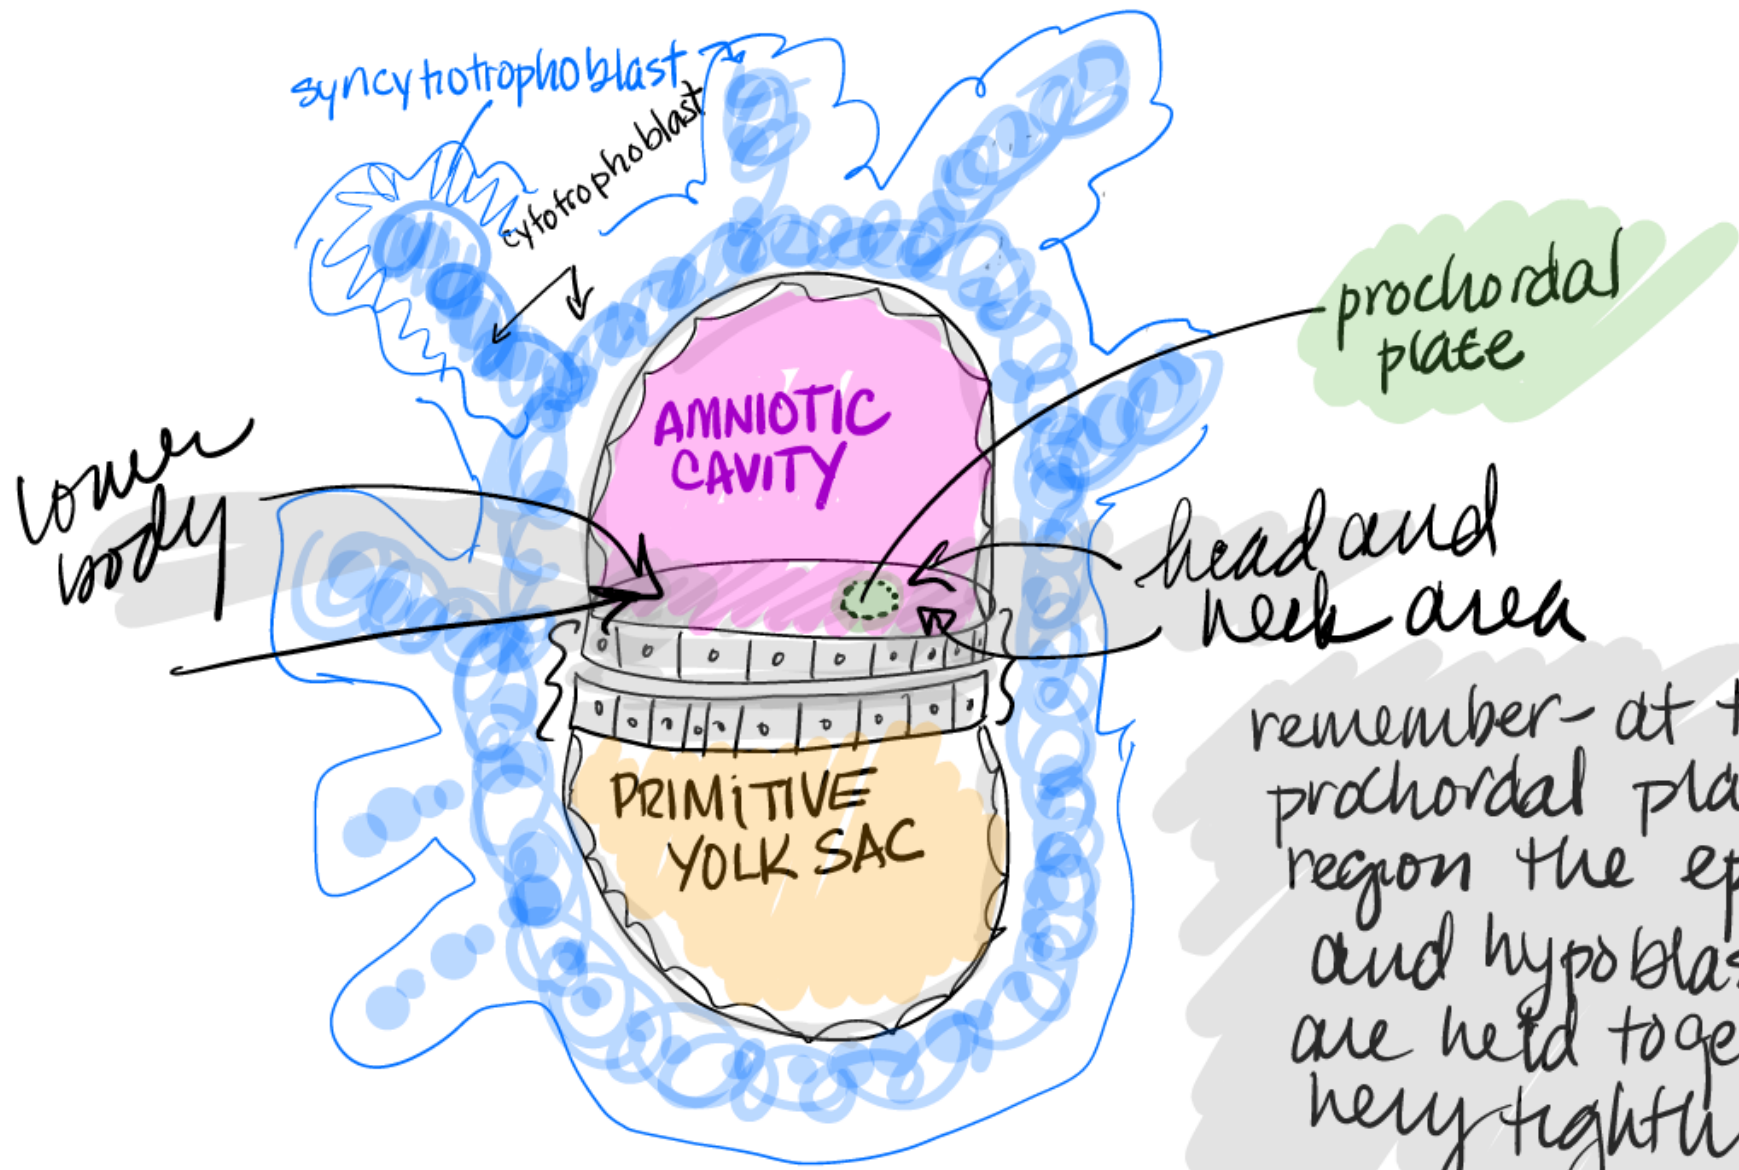 syncytiotrophoblast
cytotrophoblast
prochordal
plate
AMNIOTIC
CAVITY
lower
body
head and
neck area
PRIMITIVE
YOLK SAC
remember- at t
prochordal pla
region the ep
and hypoblas
are held toge
very tightl